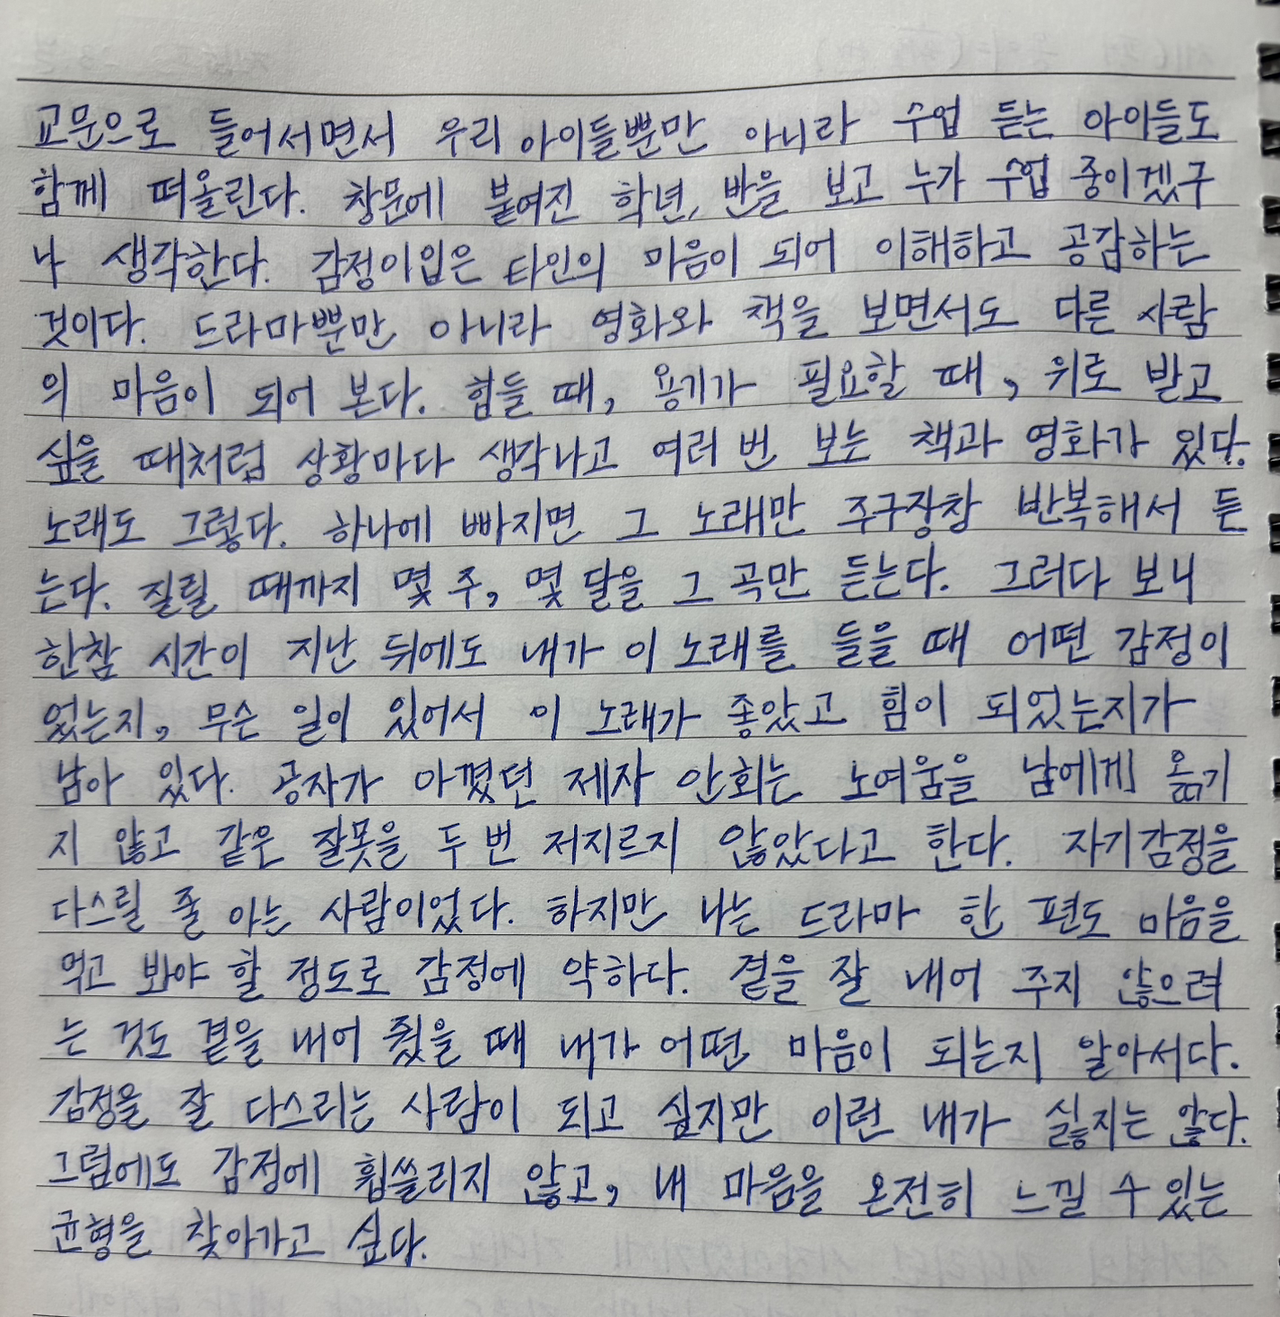 교문으로 들어서면서 우리 아이들뿐만 아니라 수업 듣는 아이들도
함께 떠올린다. 창문에 붙여진 학년, 반을 보고 누가 수업 중이겠구
나 생각한다. 감정이입은 타인의 마음이 되어 이해하고 공감하는
것이다. 드라마뿐만 아니라 영화와 책을 보면서도 다른 사람
의 마음이 되어 본다. 힘들 때, 용기가 필요할 때, 위로 받고
싶을 때처럼 상황마다 생각나고 여러 번 보는 책과 영화가 있다.
노래도 그렇다. 하나에 빠지면 그 노래만 주구장창 반복해서 듣
는다. 질릴 때까지 몇 주, 몇 달을 그 곡만 듣는다. 그러다 보니
한참 시간이 지난 뒤에도 내가 이 노래를 들을 때 어떤 감정이
었는지, 무슨 일이 있어서 이 노래가 좋았고 힘이 되었는지가
남아 있다. 공자가 아꼈던 제자 안회는 노여움을 남에게 옮기
지 않고 같은 잘못을 두 번 저지르지 않았다고 한다. 자기감정을
다스릴 줄 아는 사람이었다. 하지만 나는 드라마 한 편도 마음을
먹고 봐야 할 정도로 감정에 약하다. 곁을 잘 내어 주지 않으려
는 것도 곁을 내어 줬을 때 내가 어떤 마음이 되는지 알아서다.
감정을 잘 다스리는 사람이 되고 싶지만 이런 내가 싫지는 않다.
그럼에도 감정에 휩쓸리지 않고, 내 마음을 온전히 느낄 수 있는
균형을 찾아가고 싶다.